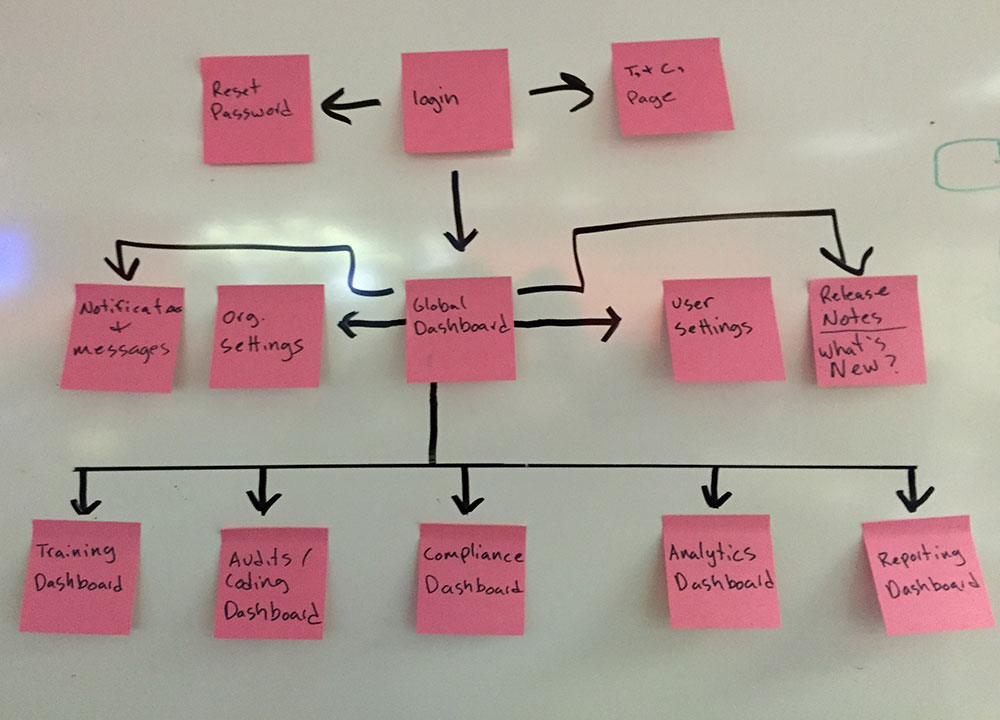 Reset
Password
login
T's + C's
Page
Notifications
+
messages
Org.
settings
Global
Dashboard
User
settings
Release
Notes
What's
New?
Training
Dashboard
Audits /
Coding
Dashboard
Compliance
Dashboard
Analytics
Dashboard
Reporting
Dashboard